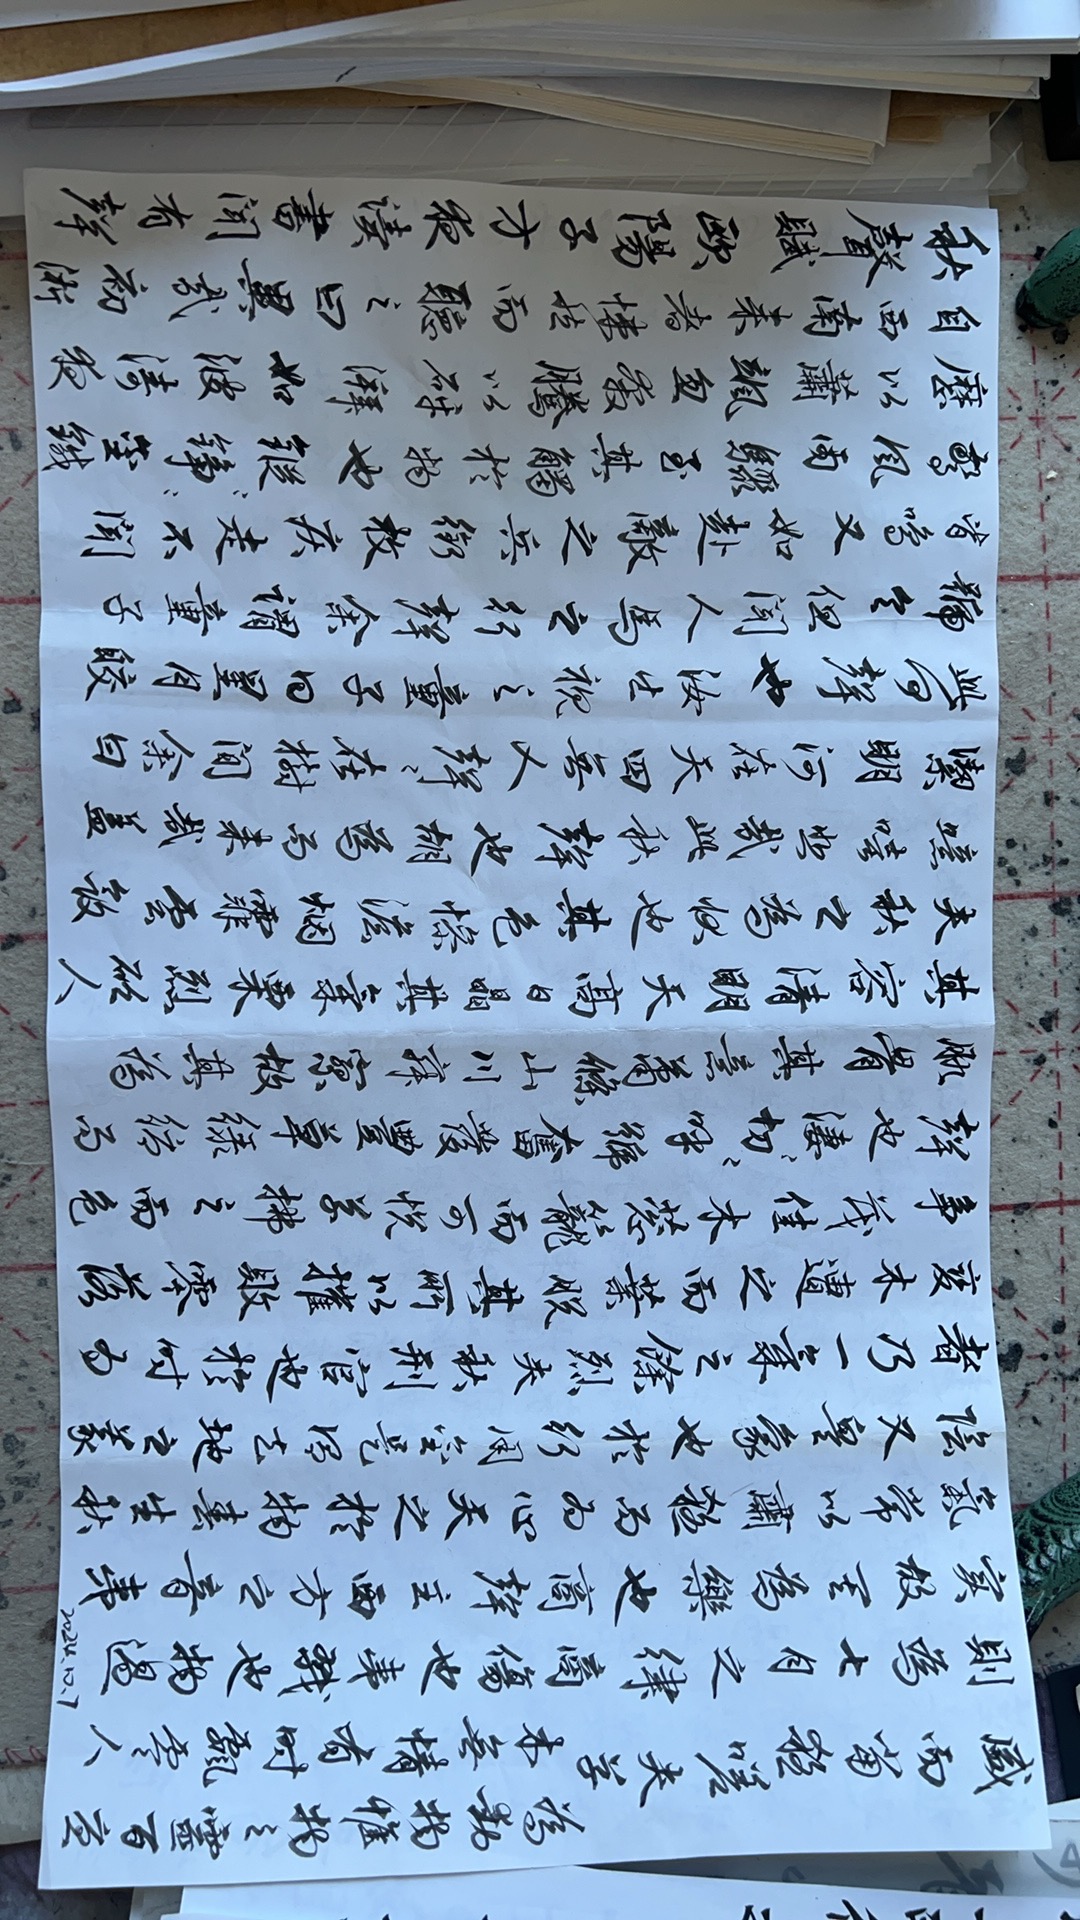 秋聲賦歐陽子方夜讀書聞有聲
自西南來者悚然而聽之曰異哉初淅
瀝以蕭颯忽奔騰以砰湃如波濤夜
驚風雨驟至其觸於物也鏦、錚、金鐵
皆鳴又如赴敵之兵銜枚疾走不聞
號令但聞人馬之行聲余謂童子
此何聲也汝出視之童子曰星月皎
潔明河在天四無人聲、在樹間余曰
噫嘻悲哉此秋聲也胡為而來哉蓋
夫秋之為狀也其色慘澹烟霏雲斂
其容清明天高日晶其氣栗烈砭人
肌骨其意蕭條山川寂寥故其為
聲也淒、切、呼號奮發豐草綠縟而
爭茂佳木蔥籠而可悅草拂之而色
變木遭之而葉脫其所以摧敗零落
者乃一氣之餘烈夫秋刑官也於時為
陰又兵象也於行用金是謂天地之義
氣常以肅殺而為心天之於物春生秋
實故其為樂也商聲主西方之音夷
則為七月之律商傷也夷戮也物過
盛而當殺嗟夫草木無情有時飄零人
為動物惟物之靈百憂
2024.10.7